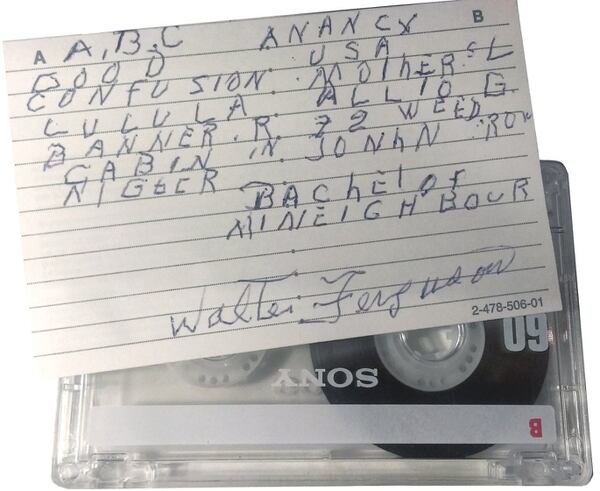 A B
A, B, C ANANCY
USA
CONFUSION. MOTHER
LULULA.
BANNER. R. 22 WEED
CABIN IN JONHN ROW
NIGGER BAChELOr
MI NEIGHBOUR
Walter Ferguson
2-478-506-01
60
SONY
B